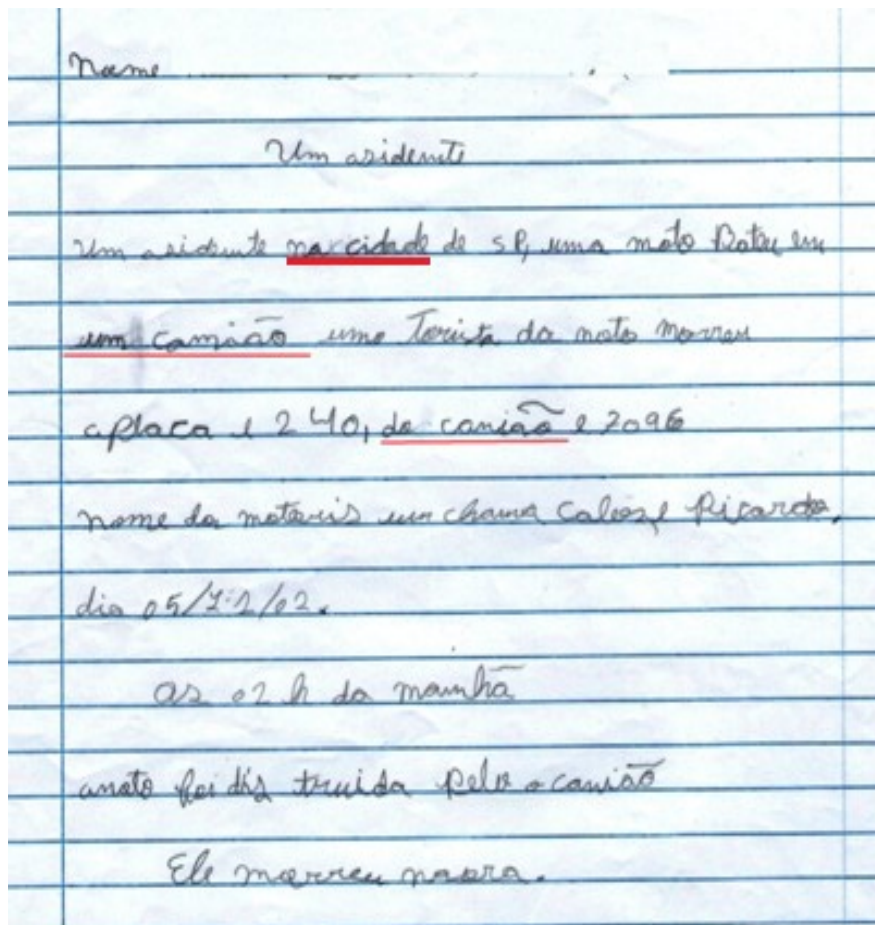 Nome
Um asidente
Um asidente na cidade de SP, uma moto Bateu em
um camião umo Torista da moto morreu
aplaca e 240, do camião e 2096
nome da motoris um chama Ricardo.
dia 05/12/02.
as 02 h da manhã
amoto foi dis truida Pelo o camião
Ele morreu naora.